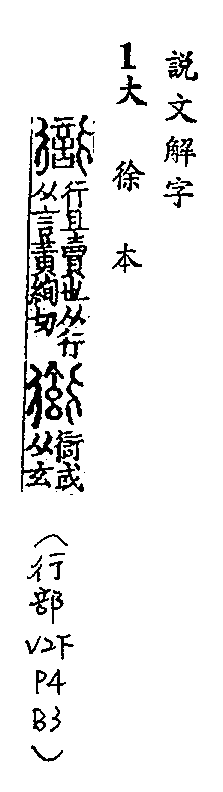 説文解字
1大徐本
𧗳行且賣也从行从言黄絢切衒𧗳或从玄
（行部V2下P4B3）